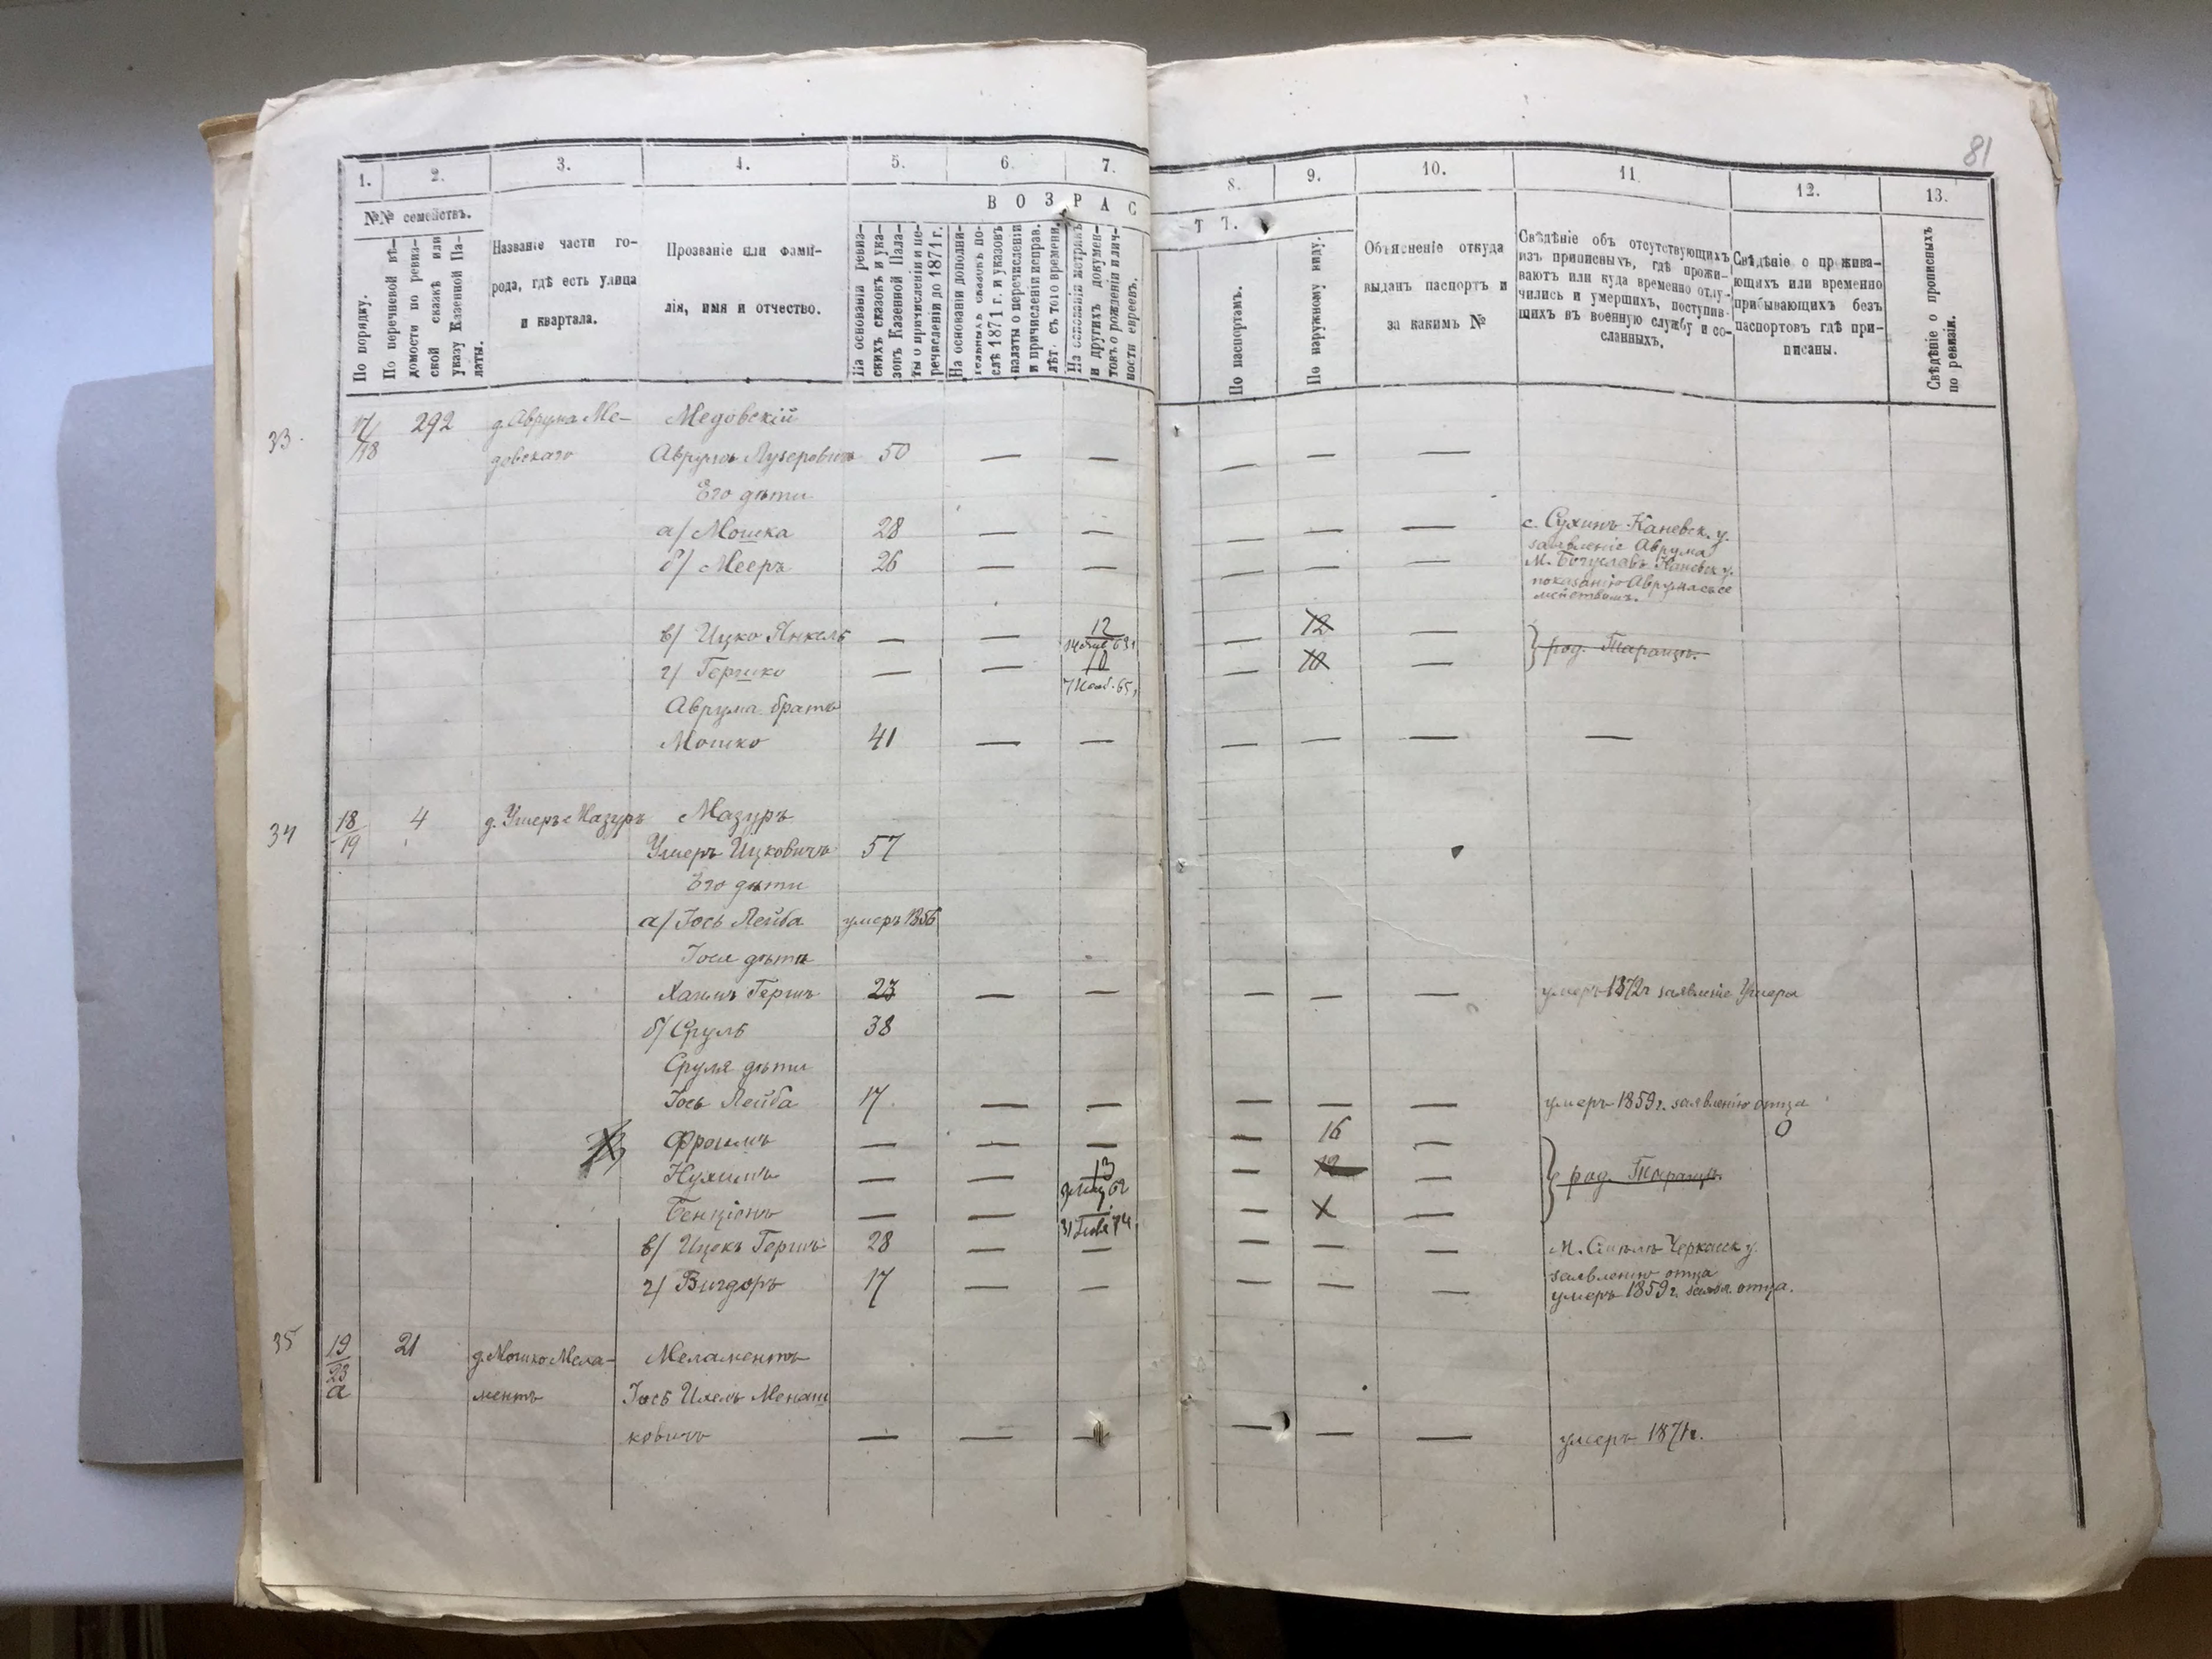 81
1. 2. 3. 4. 5. 6. 7. 8. 9. 10. 11. 12. 13.
№№ семействъ.
В О З Р А С Т Ъ.
По порядку.
По перечневой вѣ-
домости по ревиз-
ской сказкѣ или
указу Казенной Па-
латы.
Названіе части го-
рода, гдѣ есть улица
и квартала.
Прозваніе или фами-
лія, имя и отчество.
На основаніи ревиз-
скихъ сказокъ и ука-
зовъ Казенной Пала-
ты о причисленіи и пе-
речисленіи до 1871 г.
На основаніи дополни-
тельныхъ сказокъ по-
слѣ 1871 г. и указовъ
палаты о перечисленіи
и причисленіи исправ.
лѣт. съ того времени.
На основаніи метрикъ
и другихъ докумен-
товъ о рожденіи и лич-
ности евреевъ.
По паспортамъ.
По наружному виду.
Объясненіе откуда
выданъ паспортъ и
за какимъ №
Свѣдѣніе объ отсутствующихъ
изъ приписныхъ, гдѣ прожи-
ваютъ или куда временно отлу-
чились и умершихъ, поступив-
шихъ въ военную службу и со-
сланныхъ.
Свѣдѣніе о прожива-
ющихъ или временно
прибывающихъ безъ
паспортовъ гдѣ при-
писаны.
Свѣдѣніе о прописныхъ
по ревизіи.
33. 17/18 292 д. Аврума Ме- Медовскій
довскаго Аврумъ Лузеровичъ 50 — — — — —
Его дѣти
а/ Мошка 28 — — — — — с. Сухинъ Каневск. у.
заявленіе Аврума
б/ Мееръ 26 — — — — — М. Богуславъ Каневск у.
показанію Аврума съ се
мействомъ.
в/ Ицко Янкель — — 12 — 12 —
г/ Гершко — — 10 — 10 — } род. Таращъ.
Аврума братъ
Мошко 41 — — — — — —
34 18/19 4 д. Ушеръ Мазуръ Мазуръ
Ушеръ Ицковичъ 57
Его дѣти
а/ Іось Лейба умеръ 1856
Іося дѣти
Хаимъ Гершъ 23 — — — — — умеръ 1872г заявленіе Ушера
б/ Сруль 38
Сруля дѣти
Іось Лейба 17 — — — — — умеръ 1859 г. заявленію отца
Фроимъ — — — — 16 — 0
Нухимъ — — 13 — — } род. Таращъ.
Бенціонъ — — — Х —
в/ Ицекъ Гершъ 28 — — — — — М. Смѣлъ Черкасск у.
заявленію отца
г/ Вигдоръ 17 — — — — — умеръ 1859 г. заявл. отца.
35 19/23 а 21 д. Мошко Мела- Меламентъ
ментъ Іось Ихель Менаш
ковичъ — — — — — — умеръ 1871 г.